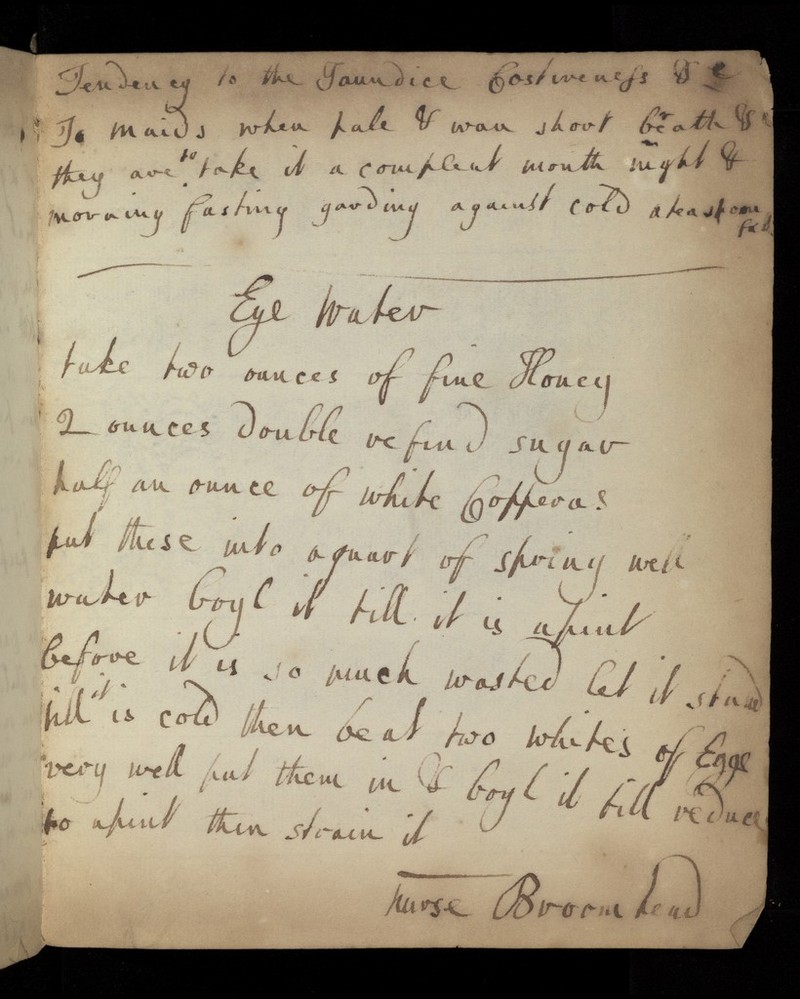 Tendency to the Jaundice Costiveness &c
To maids when pale & wan short breath &c
they are to take it a compleat month night &
morning fasting garding against cold a teaspoon
full
Eye Water
take two ounces of fine Honey
2 ounces double refind sugar
half an ounce of white Copperas
put these into a quart of spring well
water boyl it till it is a pint
before it is so much wasted let it stand
till it is cold then beat two whites of Eggs
very well put them in & boyl it till reduce
to a pint then strain it
Nurse Broomhead